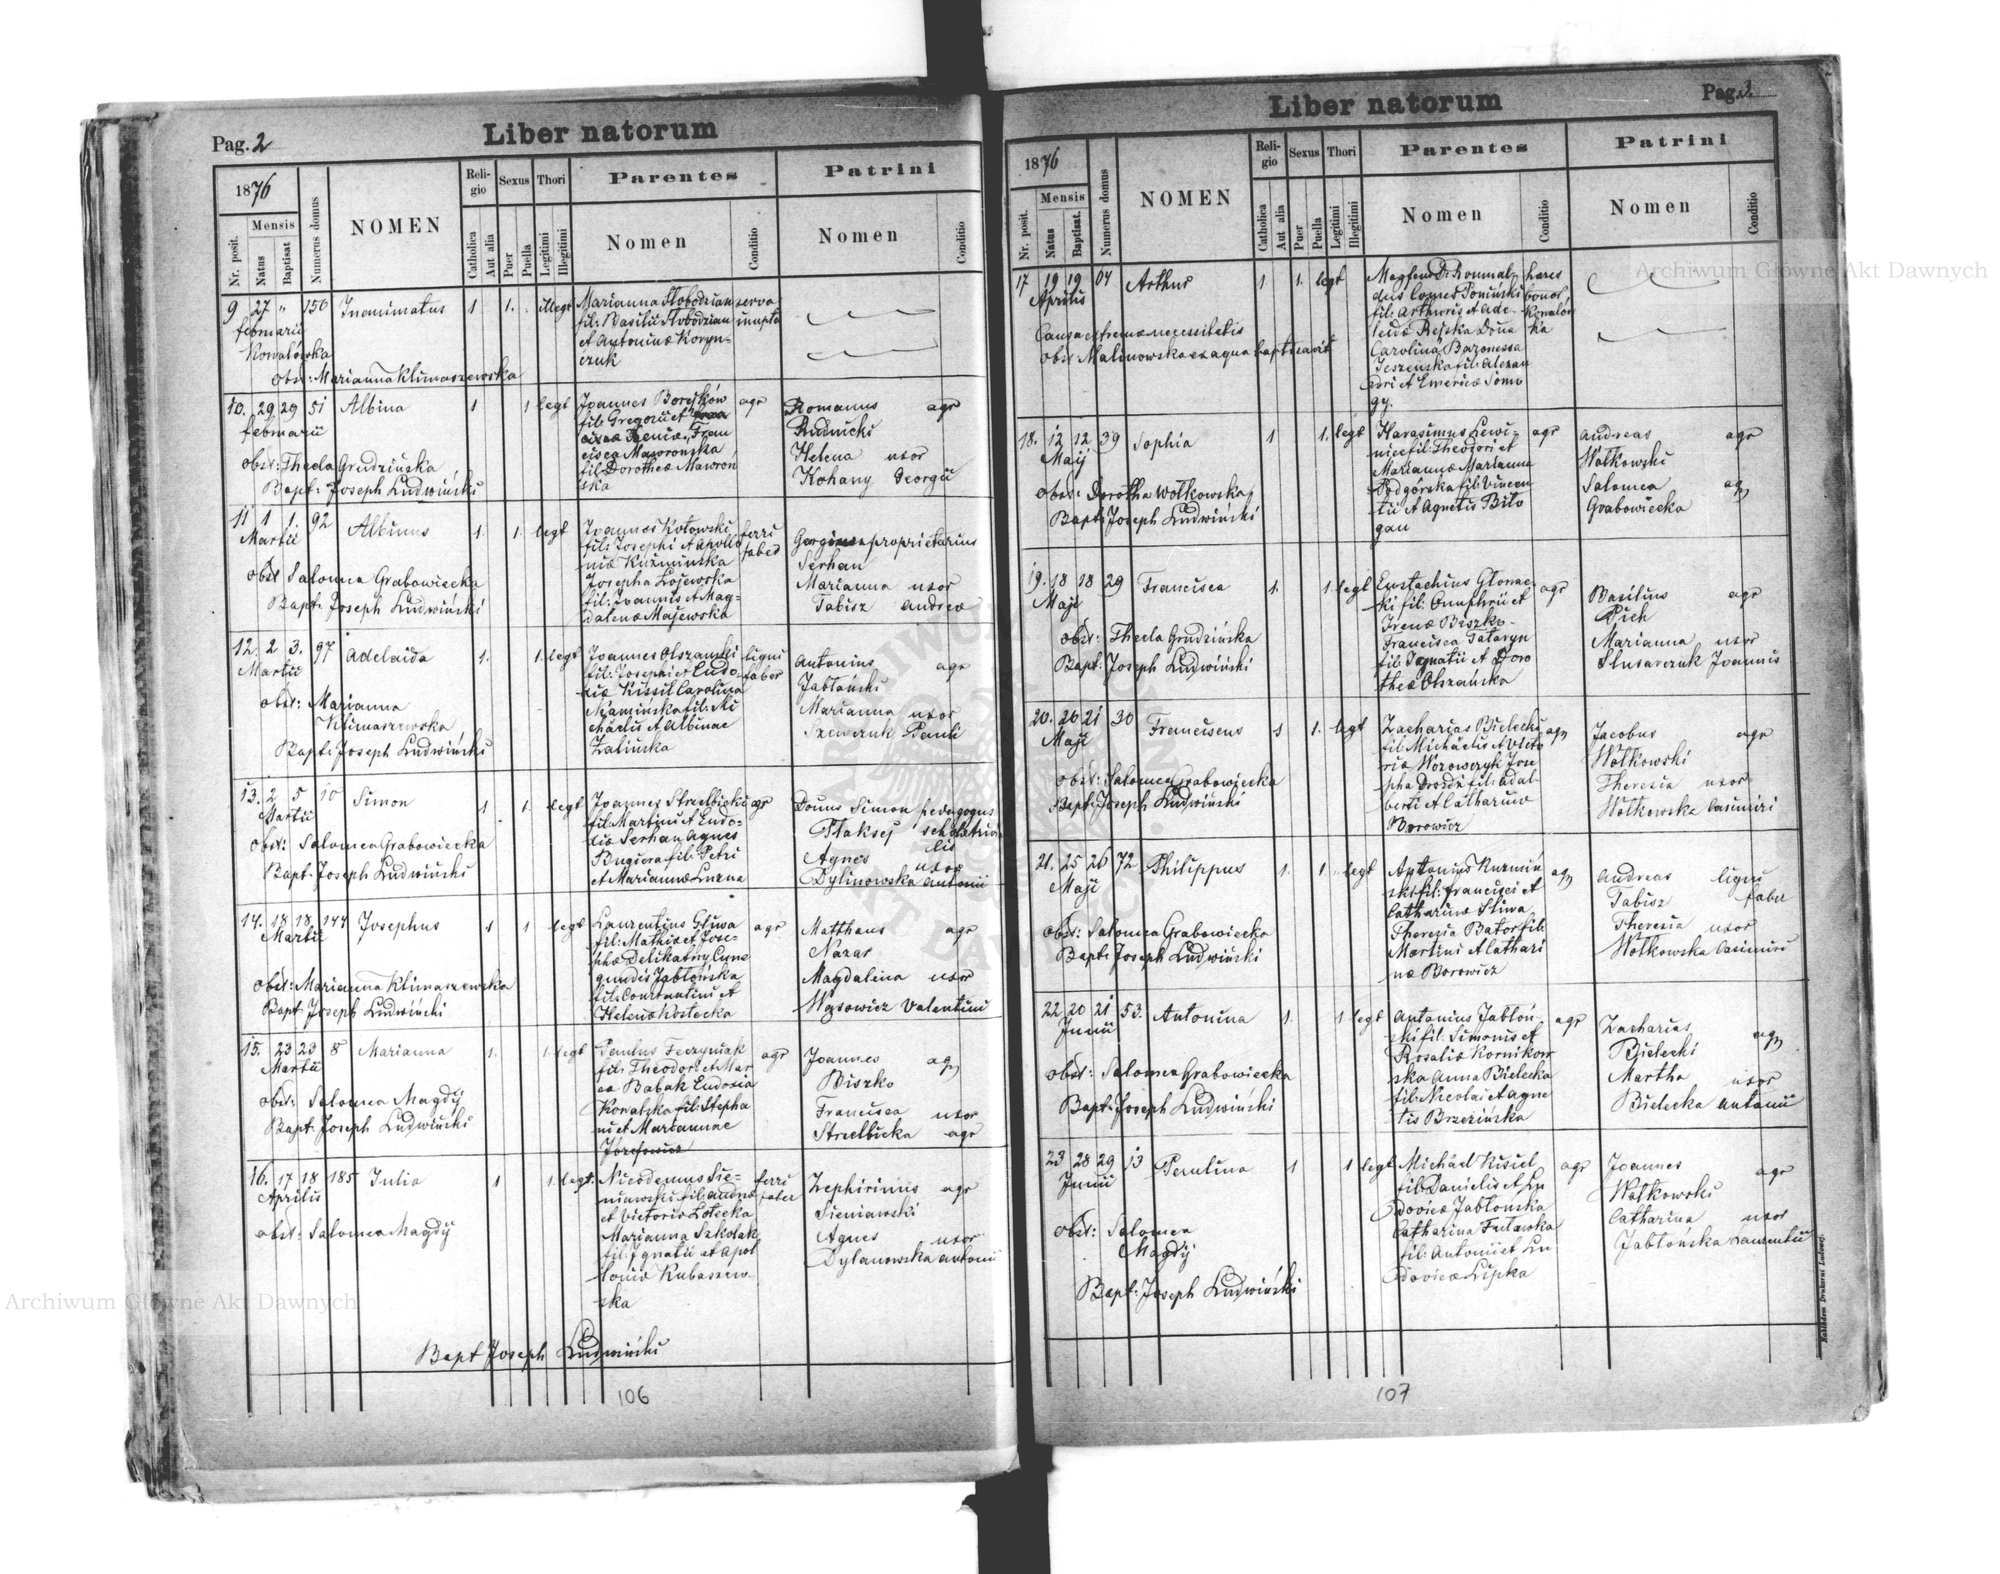 Pag. 2
Liber natorum
1876
Nr. posit.
Mensis
Natus
Baptisat
Numerus domus
NOMEN
Religio
Catholica
Aut alia
Sexus
Puer
Puella
Thori
Legitimi
Illegitimi
Parentes
Nomen
Conditio
Patrini
Nomen
Conditio
9 27 " 150 Inanimatus 1 1. illegt
februarii
Kowalówka
Obst: Marianna Klimaszewska
Marianna Słobodzian serva
fil: Basilii Słobodzian inupta
et Antoninæ
10. 29 29 51 Albina 1 1 legt
februarii
obst: Thecla Grudzińska
Bapt: Joseph Ludwiński
Joannes Borejków agr
fil: Gregorii et
Xeniæ, Fran
cisca Maworonska
fil: Dorotheæ Maworoń
ska
Romanus agr
Rudnicki
Helena uxor
Kohany Georgii
11 1 1. 92 Albinus 1. 1. legt
Martii
obst Salomea Grabowiecka
Bapt. Joseph Ludwiński
Joannes Kotowski ferri
fil: Josephi et Apollo faber
niæ Kuźmińska
Josepha Łojewska
fil: Joannis et Mag=
dalenæ Majewska
proprietarius
Serhan
Marianna uxor
Tabisz Andreæ
12. 2 3. 97 Adelaida 1. 1. legt
Martii
obst: Marianna
Klimaszewska
Bapt: Joseph Ludwiński
Joannes Olszański ligni
fil: Josephi et Eudo= faber
xiæ Kissil Carolina
Kamińska fil: Mi
chaelis et Albinae
Zalińska
Antonius agr
Jabłoński
Marianna uxor
Szewczuk Pauli
13. 2 5 10 Simon 1 1. legt
Martii
obst: Salomea Grabowiecka
Bapt. Joseph Ludwiński
Joannes Strzelbicki agr
fil: Martini et Eudo=
xiæ Serhan Agnes
Bugiera fil: Petri
et Mariannæ Luzna
Dnus Simon pedagogus
Ptaksej
Agnes uxor
Dylinowska Antonii
14. 18 18 144 Josephus 1 1 legt
Martii
obst: Marianna Klimaszewska
Bapt Joseph Ludwiński
Laurentius Gliwa agr
fil: Mathiæ et Jose=
phæ Delikatny Cune
gundis Jabłońska
fil: Constantini et
Helenæ Kostecka
Matthaus agr
Nazar
Magdalena uxor
Wąsowicz Valentini
15. 23 23 8 Marianna 1. 1. legt
Martii
obst: Salomea Magdij
Bapt. Joseph Ludwiński
Paulus Feczyniak agr
fil: Theodori et Mar
Babak Eudoxia
Kowalska fil: Stepha
ni et Mariannae
Józefowicz
Joannes agr
Biszko
Francisca uxor
Strzelbicka agr
16. 17 18 185 Julia 1 1. legt.
Aprilis
obst: Salomea Magdij
Nicodemus Sie= ferri
niawski fil: Andreæ faber
et Victoriæ Łotecka
Marianna Szkolak
fil: Ignatii et Apol
loniæ Kubaszew=
ska
Zephirinus agr
Sieniawski
Agnes uxor
Dylanowska Antonii
Bapt Joseph Ludwiński
106
Liber natorum
Pag. 3.
1876
Nr. posit.
Mensis
Natus
Baptisat.
Numerus domus
NOMEN
Religio
Catholica
Aut alia
Sexus
Puer
Puella
Thori
Legitimi
Illegitimi
Parentes
Nomen
Conditio
Patrini
Nomen
Conditio
17 19 19 04 Arthur 1 1. legt
Aprilis
Causa extremæ necessitatis
obst: Malinowska ex aqua baptisavit
Magfcus Ds Romual= hæres
dus Comes Poniński bonor
fil: Arthuris et Ade= Kowalów
laidæ Rejska Dna ka
Carolina Baronessa
Jeszenska fil: Alexan
dri et Emericæ Somo
gy.
18. 12 12 39 Sophia 1 1. legt
Maij
obst: Dorotha Wołkowska
Bapt: Joseph Ludwiński
Harasimus Lewi= agr
nice fil: Theodori et
Mariannæ Marianna
Podgórska fil: Vincen
tii et Agnetis Biło
gan
Andreas agr
Wołkowski
Salomea agr
Grabowiecka
19. 18 18 29 Francisca 1. 1. legt
Maji
obst: Thecla Grudzińska
Bapt: Joseph Ludwiński
Eustachius Głowac= agr
ki fil: Onuphrii et
Irenæ Biszko=
Francisca Tataryn
fil: Ignatii et Doro
theæ Olszańska
Basilius agr
Pich
Marianna uxor
Slusarczuk Joannis
20. 20 21 30 Franciscus 1 1. legt
Maji
obst: Salomea Grabowiecka
Bapt: Joseph Ludwiński
Zacharias Bielecki agr
fil: Michaelis et Victo
riæ Worowczyk Jose
pha Drozdz fil: Adal=
berti et Catharinæ
Borowicz
Jacobus agr
Wołkowski
Theresia uxor
Wołkowska Casimiri
21. 25 26 72 Philippus 1. 1. legt
Maji
obst: Salomea Grabowiecka
Bapt: Joseph Ludwiński
Antonius Kuzmiń= agr
ski fil: Francisci et
Catharinæ Sliwa
Theresia Bator fil:
Martini et Cathari
næ Borowicz
Andreas ligni
Tabisz faber
Theresia uxor
Wołkowska Casimiri
22 20 21 53. Antonina 1. 1 legt
Junii
obst: Salomea Grabowiecka
Bapt: Joseph Ludwiński
Antonius Jabłoń= agr
ski fil: Simonis et
Rosaliæ Kornikow
ska Anna Bielecka
fil: Nicolai et Agne
tis Brzezińska
Zacharias agr
Bielecki
Martha uxor
Bielecka Antonii
23 28 29 13 Paulina 1 1 legt
Junii
obst: Salomea
Magdij
Bapt: Joseph Ludwiński
Michael Kisiel agr
fil: Danielis et Lu
dovicæ Jabłońska
Catharina Futawska
fil: Antonii et Lu
dovicæ Lipka
Joannes agr
Wołkowski
Catharina uxor
Jabłońska Laurentii
107
Nakładem Drukarni Ludowej.
Archiwum Główne Akt Dawnych
Archiwum Główne Akt Dawnych